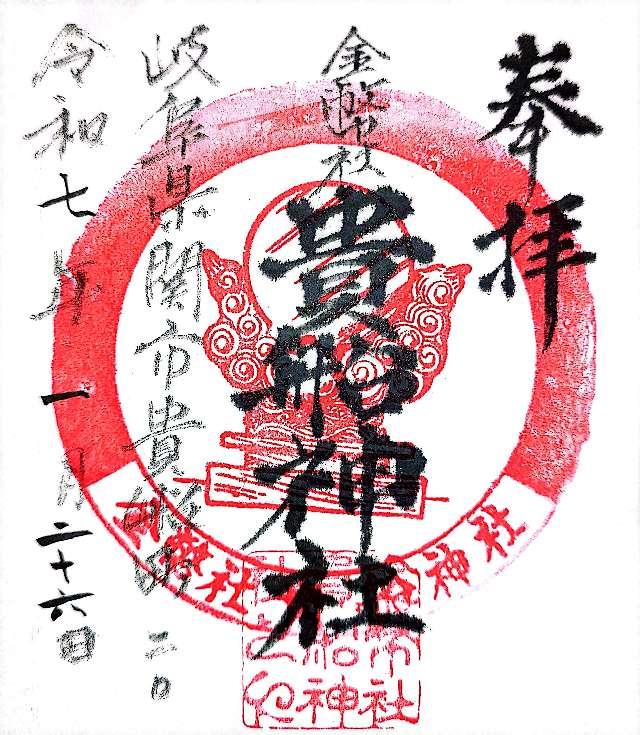 奉拝
金幣社
貴船神社
岐阜県関市貴船町二〇
令和七年一月二十六日
金幣社 貴船神社
神社